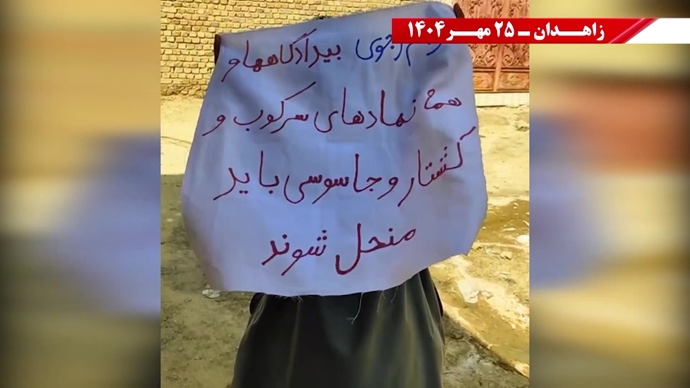 زاهـدان ـ ۲۵ مهـر ۱۴۰۴
رجوی بیدادگاهها و
همه نمادهای سرکوب و
کشتار و جاسوسی باید
منحل شوند